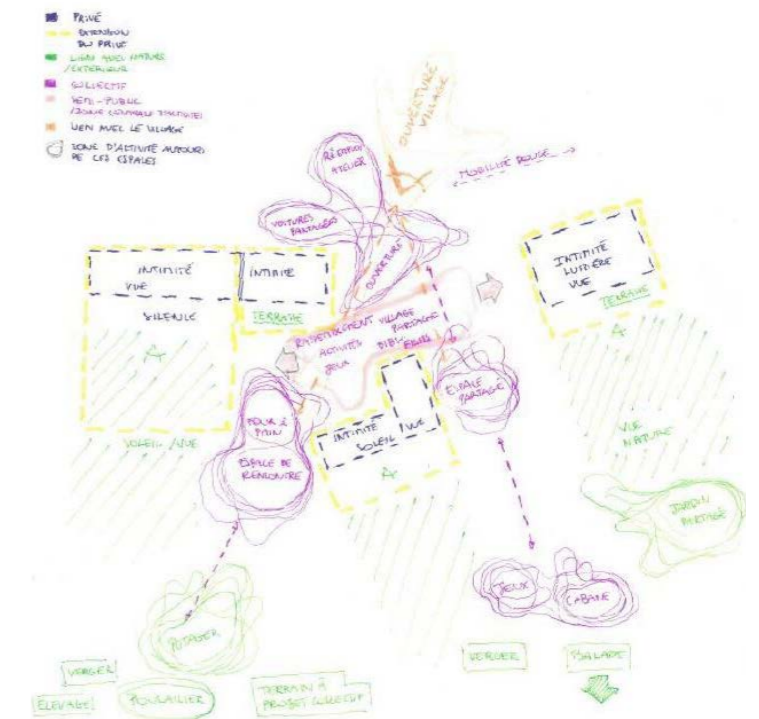 PRIVÉ
EXTENSION
DU PRIVÉ
LIEN AVEC NATURE
/EXTÉRIEUR
COLLECTIF
SEMI-PUBLIC
/ZONE CENTRALE D'ACTIVITÉS
LIEN AVEC LE VILLAGE
ZONE D'ACTIVITÉ AUTOUR
DE CES ESPACES
OUVERTURE
VILLAGE
RÉEMPLOI
ATELIER
MOBILITÉ DOUCE
VOITURES
PARTAGÉES
OUVERTURE
INTIMITÉ
VUE
INTIMITÉ
SILENCE
TERRASSE
INTIMITÉ
LUMIÈRE
VUE
TERRASSE
RASSEMBLEMENT VILLAGE
ACTIVITÉS PARTAGE
JEUX
ESPACE
PARTAGÉ
FOUR À
PAIN
ESPACE DE
RENCONTRE
INTIMITÉ
SOLEIL / VUE
SOLEIL / VUE
VUE
NATURE
JARDIN
PARTAGÉ
JEUX
CABANE
POTAGER
VERGER
ÉLEVAGE
POULAILLER
TERRAIN À
PROJET COLLECTIF
VERGER
BALADE